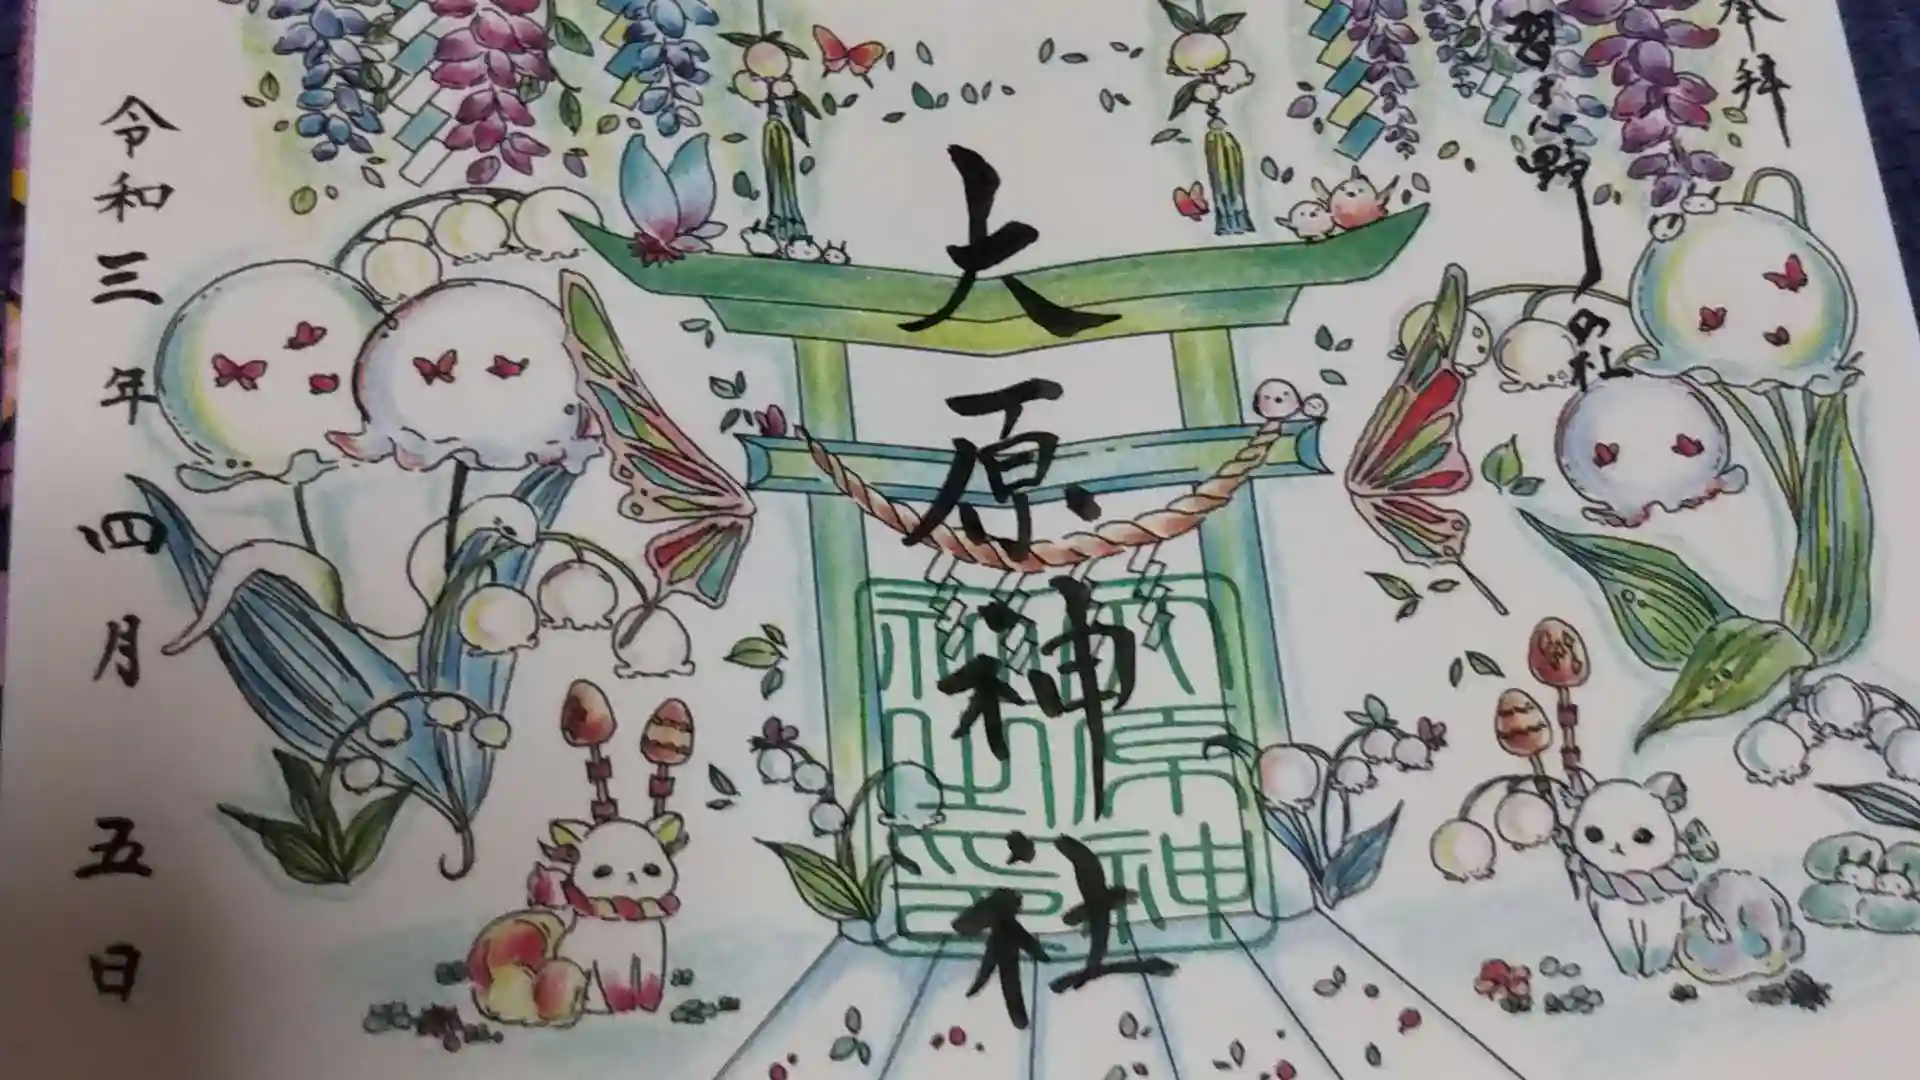 奉拝
習志野
の杜
大原神社
令和三年四月五日